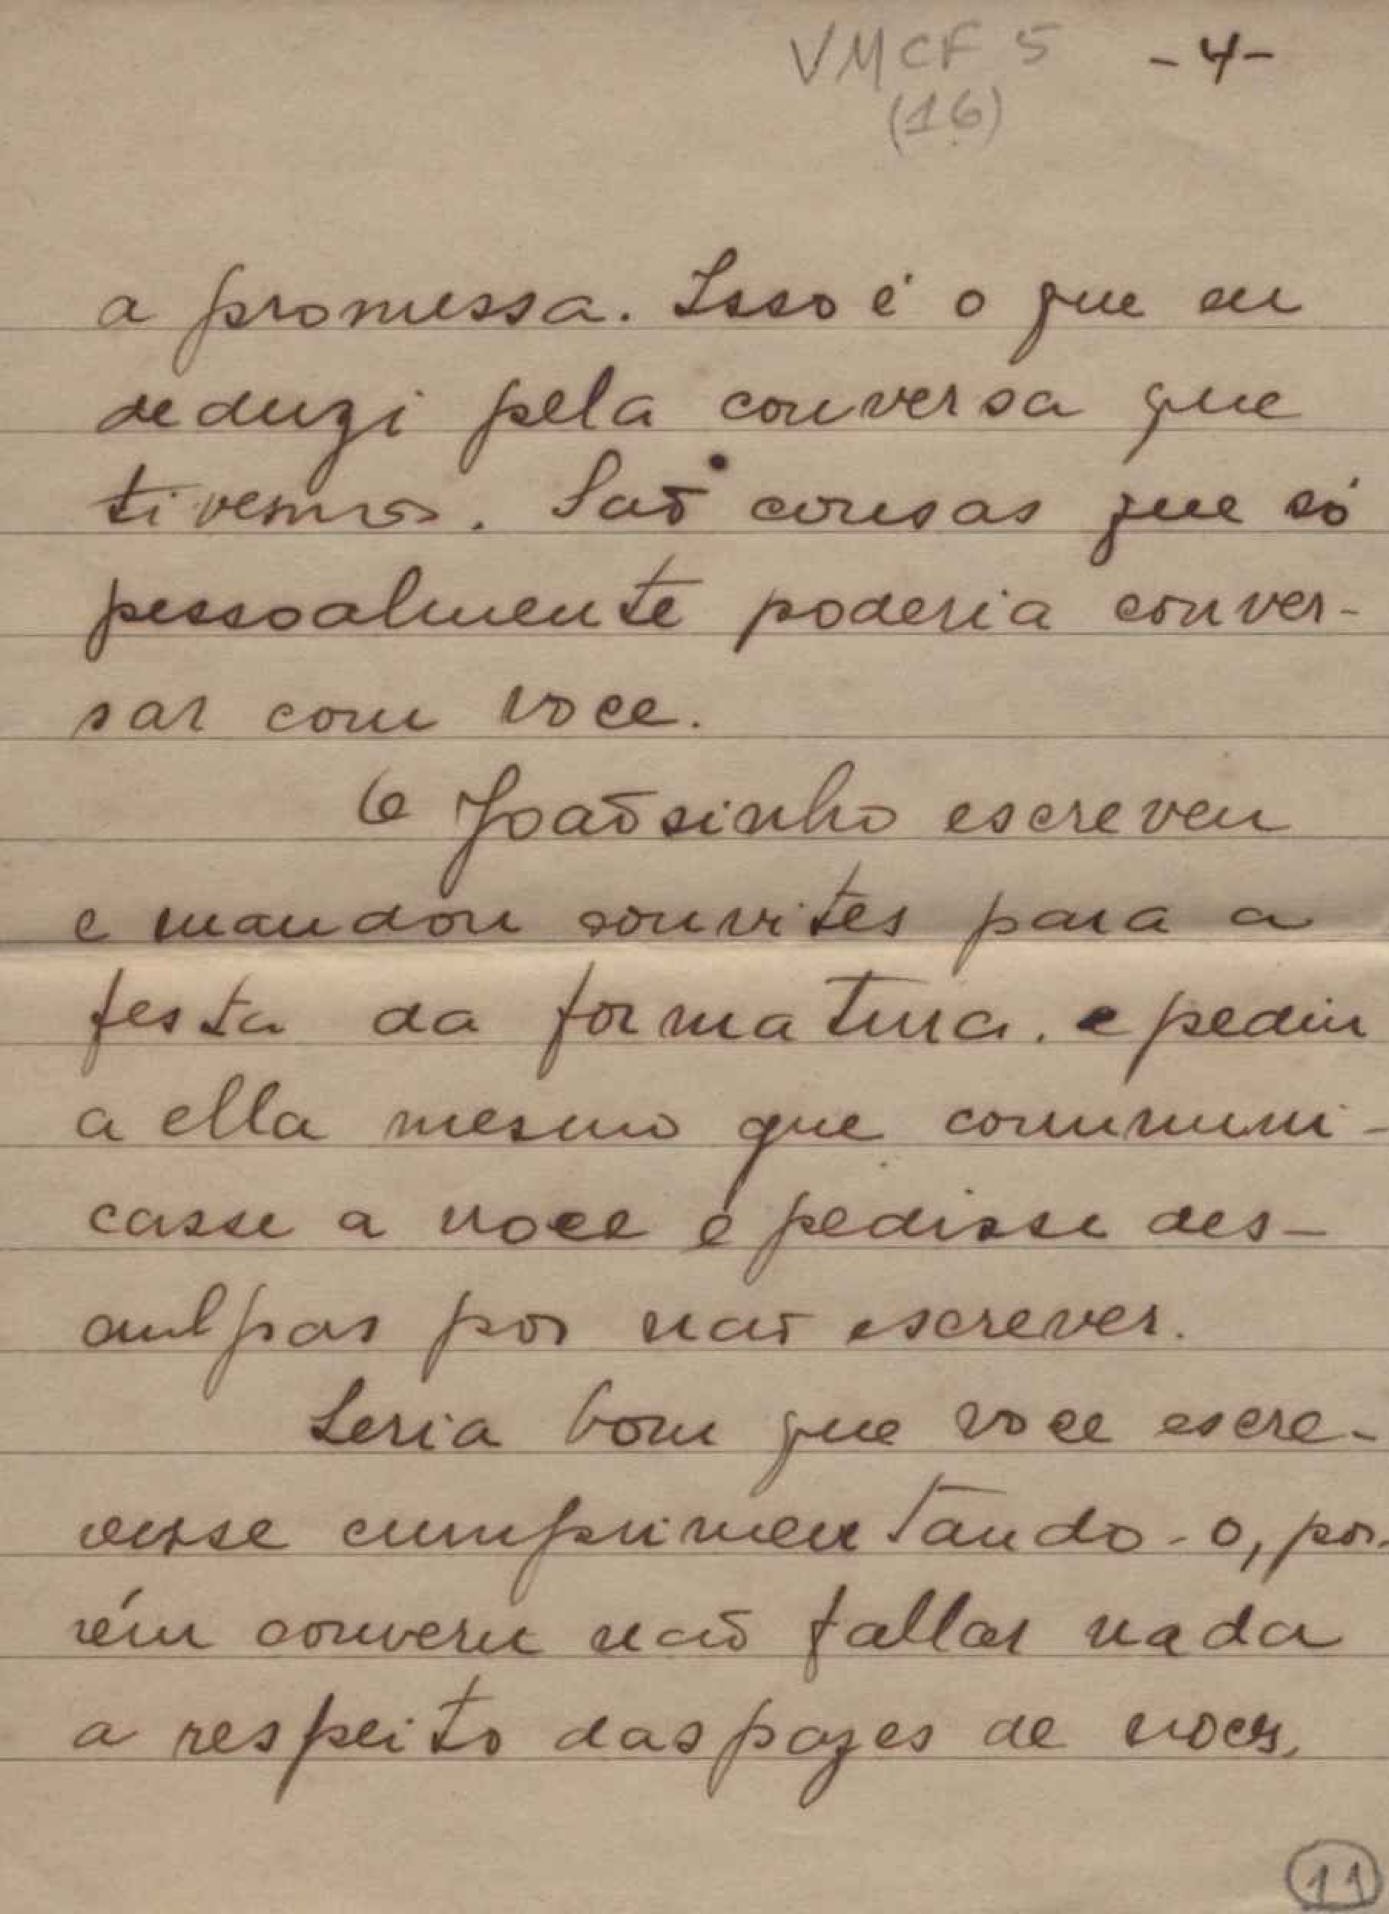 VMCF 5 -4-
(16)
a promessa. Isso é o que eu
deduzi pela conversa que
tivemos. Saõ cousas que só
pessoalmente poderia conver-
sar com voce.
O Joaõsinho escreveu
e mandou convites para a
festa da formatura. e pediu
a ella mesmo que communi-
casse a voce e pedisse des-
culpas por naõ escrever.
Seria bom que voce escre-
vesse cumprimentando-o, po-
rém convem naõ fallar nada
a respeito das pazes de voces.
11